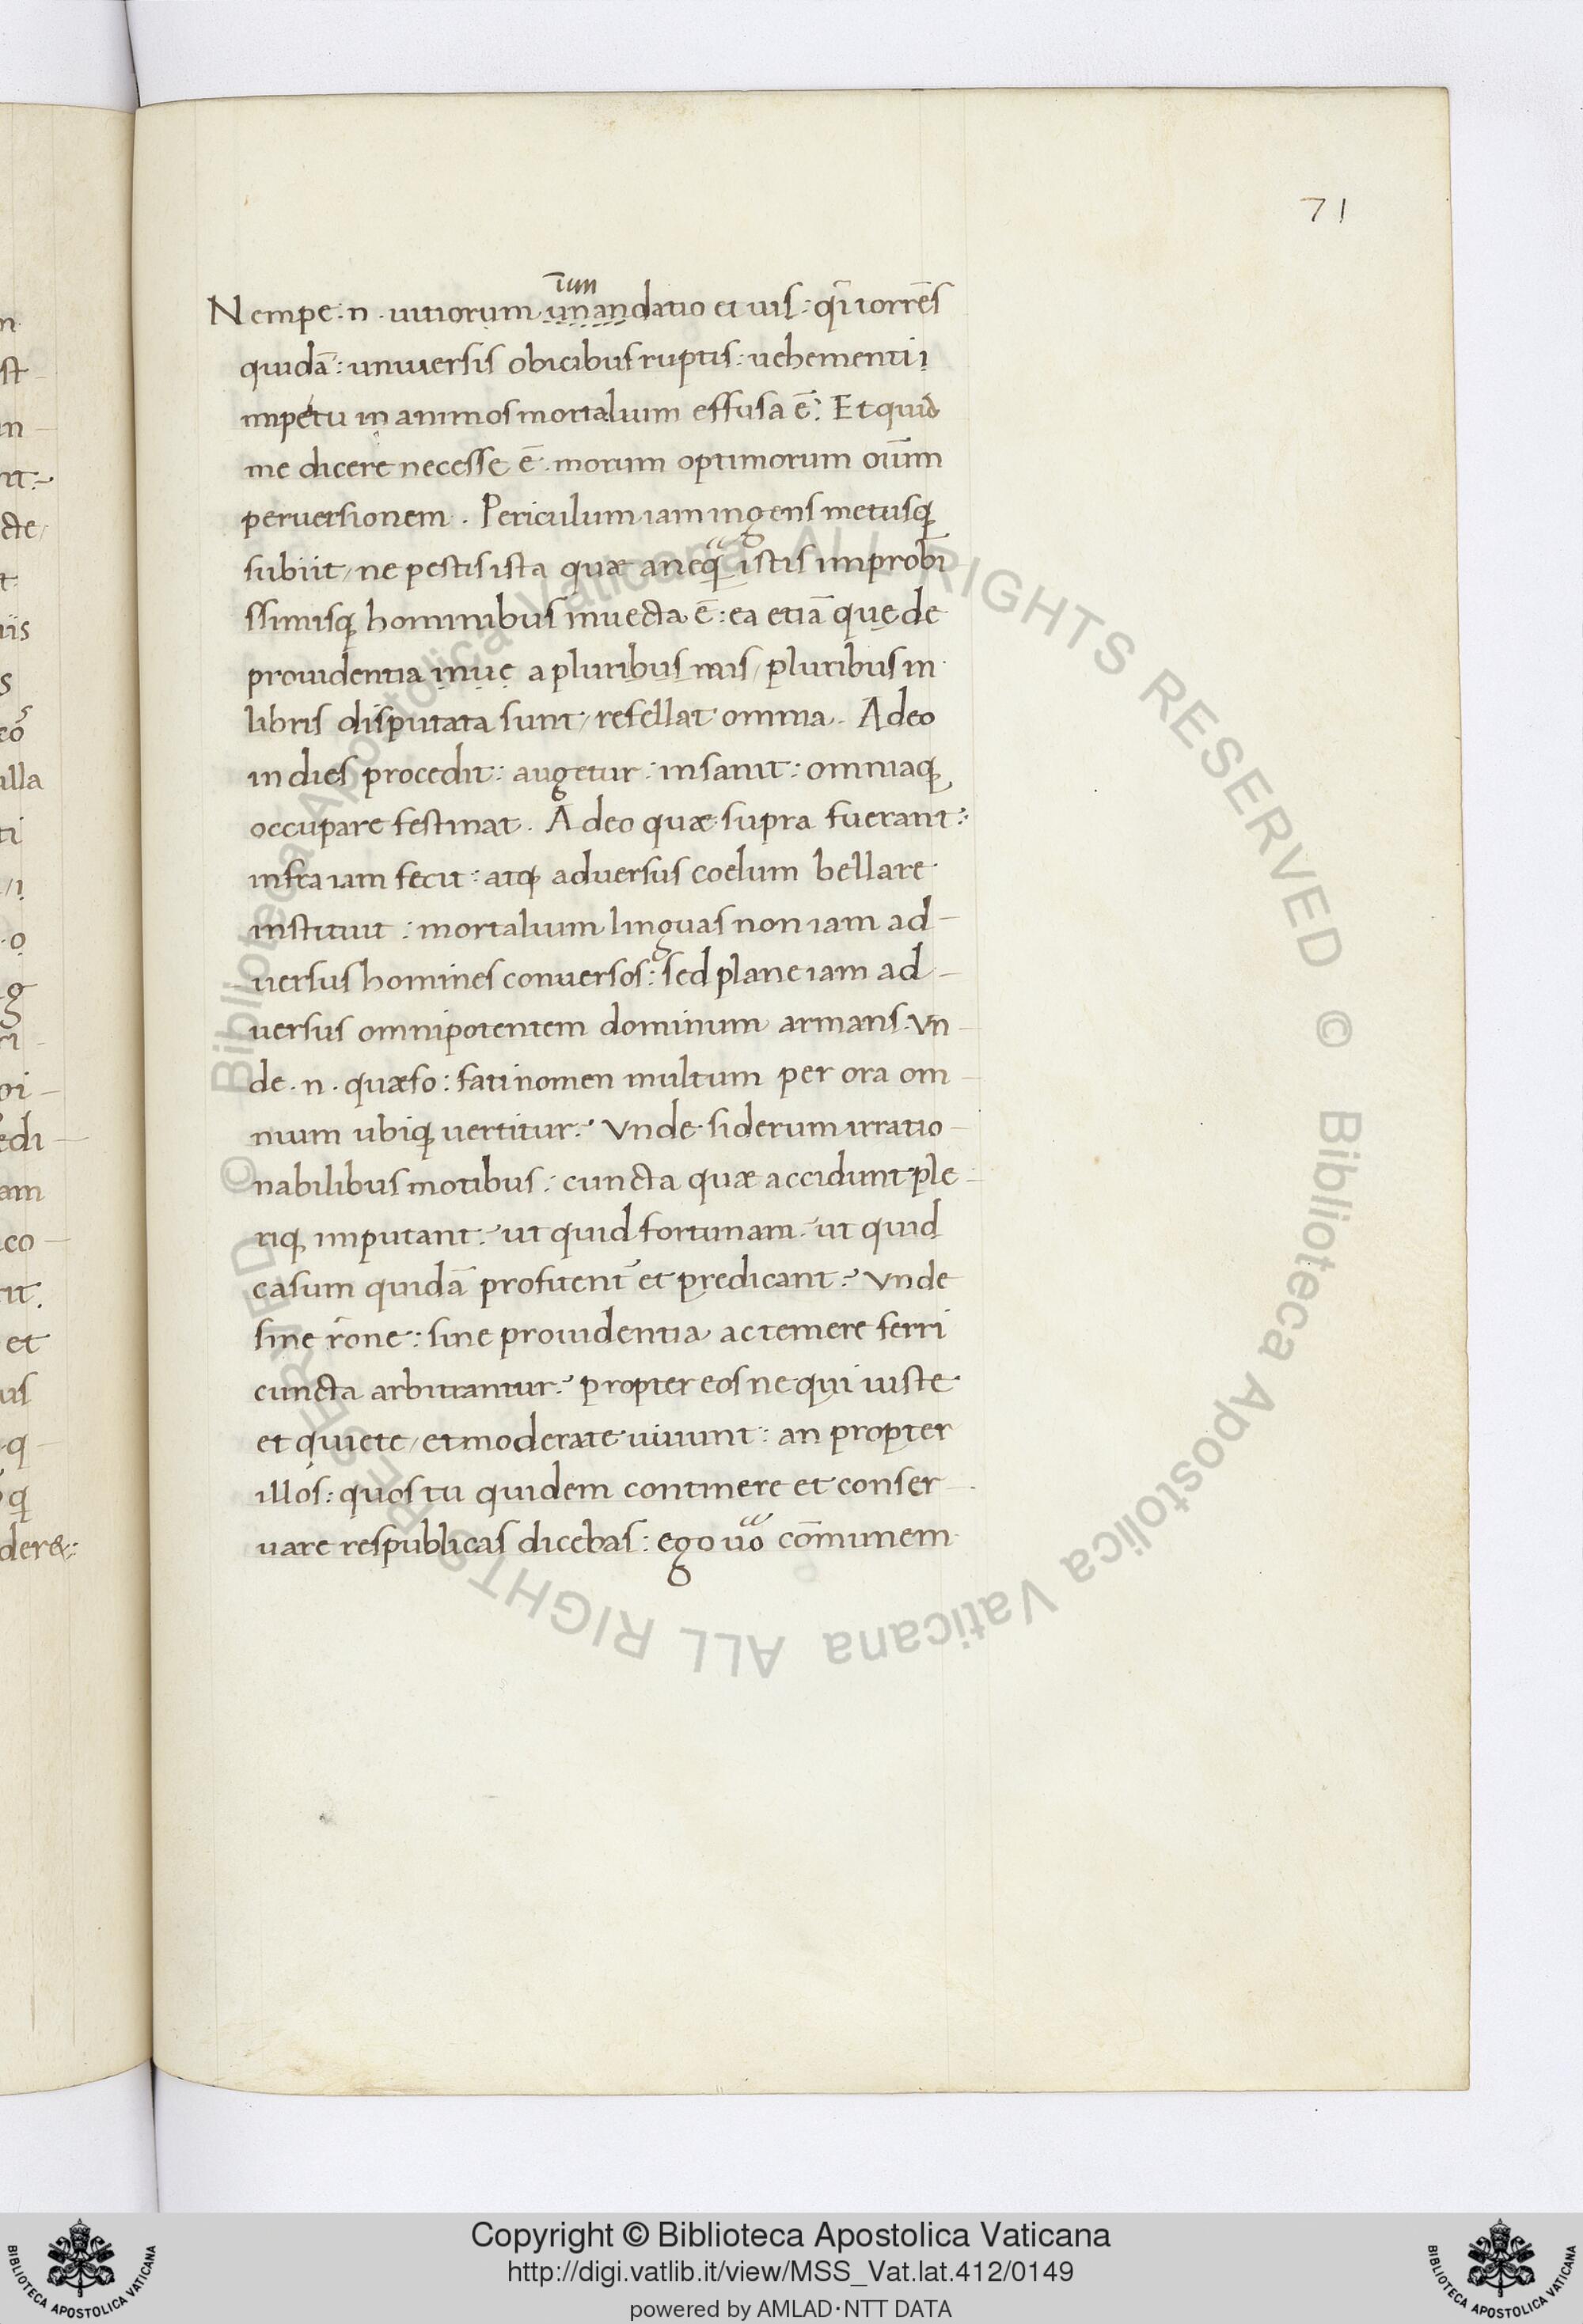 71
iun
Nempe .n. uitiorum unandatio et uis: qͥ torrẽs
quidã: uniuersis obicibus ruptis: uehementi i
impetu in animos mortalium effusa ẽ: Et quid
me dicere necesse ẽ. morum optimorum oĩum
peruersionem. Periculum iam ingens metusq;
subiit, ne pestis ista quæ a neq̃ istis improbi
ssimisq; hominibus inuecta ẽ: ea etiã quę de
prouidentia a pluribus pluribus in
libris disputata sunt, refellat omnia. Adeo
in dies procedit: augetur: insanit: omniaq;
occupare festinat. Adeo quæ supra fuerant:
infra iam fecit: atq; aduersus coelum bellare
instituit: mortalium linguas non iam ad-
uersus homines conuersos: sed plane iam ad-
uersus omnipotentem dominum armans. Vn
de .n. quæso: fati nomen multum per ora om
nium ubiq; uertitur? Vnde siderum irratio
nabilibus motibus: cuncta quæ accidunt ple-
riq; imputant? ut quid fortunam? ut quid
casum quidã profitent̃ et predicant? Vnde
sine rõne: sine prouidentia ac temere ferri
cuncta arbitrantur? propter eos ne qui iuste
et quiete, et moderate uiuunt: an propter
illos: quos tu quidem continere et conser
uare respublicas dicebas: ego uõ cõmunem
n
st
in
nt
cte,
t
uis
s
eõ
illa
ti
o
g
pi
edi
am
co
it.
et
us
q
q;
dere:
© Biblioteca Apostolica Vaticana ALL RIGHTS RESERVED © Biblioteca Apostolica Vaticana ALL RIGHTS RESERVED
Copyright © Biblioteca Apostolica Vaticana
http://digi.vatlib.it/view/MSS_Vat.lat.412/0149
powered by AMLAD·NTT DATA
BIBLIOTECA APOSTOLICA VATICANA
BIBLIOTECA APOSTOLICA VATICANA